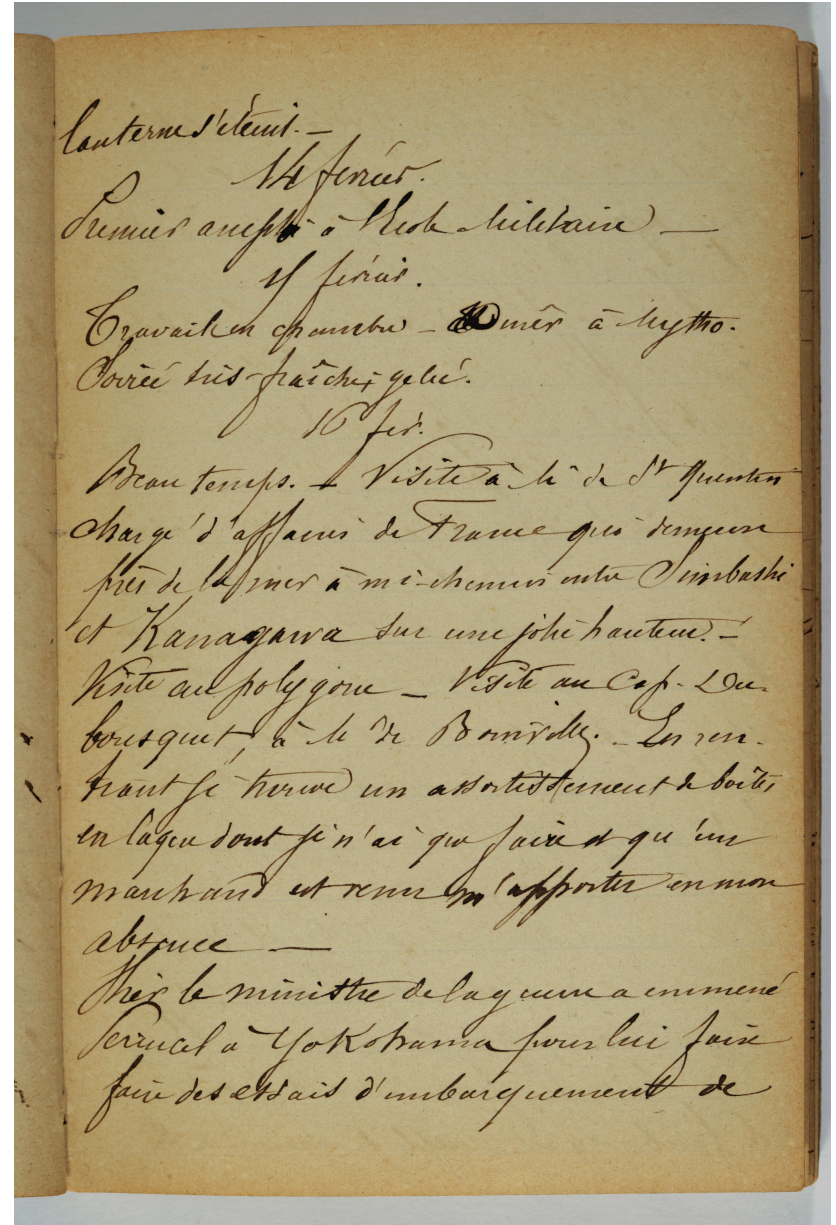 lanterne s'éteint. —
14 février.
Premier amphi à l'Ecole Militaire —
15 février.
Travail en chambre — Diner à Mytho.
Soirée très-fraîche, gelée.
16 fév.
Beau temps. — Visite à M. de St Quentin
chargé d'affaires de France qui demeure
près de la mer à mi-chemin entre Simbashi
et Kanagawa sur une jolie hauteur. —
Visite au polygone — Visite au Cap. Du-
bousquet, à M. de Boinville. — En ren-
trant je trouve un assortissement de boîtes
en laque dont je n'ai que faire et qu'un
marchand est venu m'apporter en mon
absence —
Hier le ministre de la guerre a emmené
Perrucel à Yokohama pour lui faire
faire des essais d'embarquement de